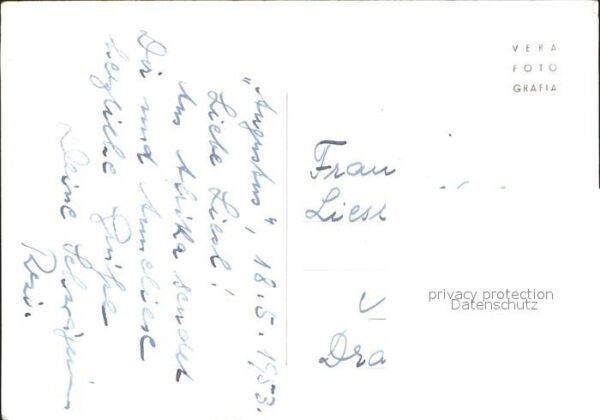 „Augustus", 18.5.1953.
Liebe Liesl!
Aus Afrika sendet
Dir und Anneliese
herzliche Grüße
Deine Schwägerin
Resi.
VERA
FOTO
GRAFIA
Frau
Liesl
Dra
privacy protection
Datenschutz